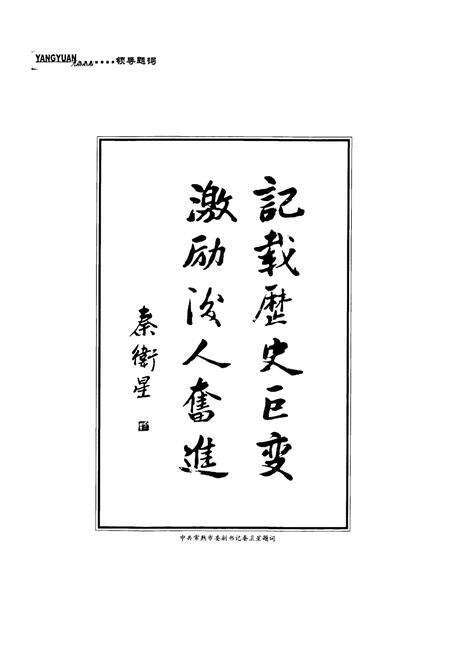 YANGYUAN
领导题词
記載歷史巨变
激励後人奮進
秦衛星
中共常熟市委副书记秦卫星题词